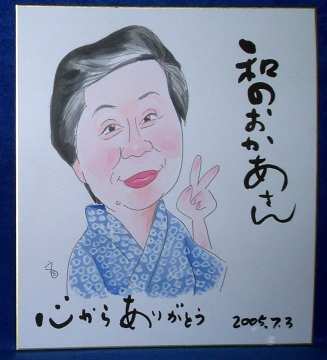 和のおかあさん
心からありがとう
2005.7.3